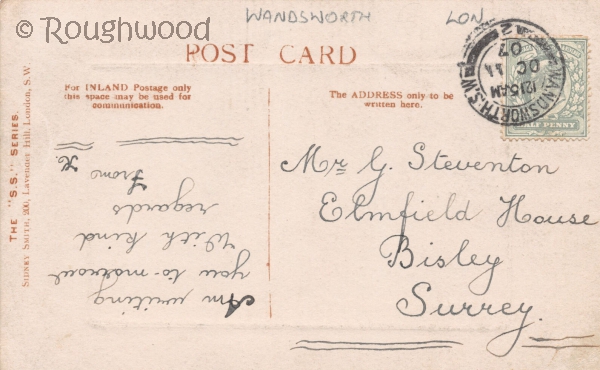 © Roughwood
WANDSWORTH LON
POST CARD
For INLAND Postage only
this space may be used for
communication.
The ADDRESS only to be
written here.
THE "S.S." SERIES.
SIDNEY SMITH, 200, Lavender Hill, London, S.W.
WANDSWORTH.S.W
12.15AM
OC 11
07
HALF PENNY
Mr G. Steventon
Elmfield House
Bisley
Surrey.
Am writing
you to-morrow
With kind
regards
From